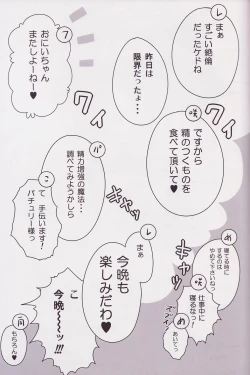 レ
まぁ
すごい絶倫
だったケドね
昨日は
限界だったぉ…
フ
おにいちゃん
またしよーねー♥
クイ
クイ
咲
ですから
精のつくものを
食べて頂いて♥
パ
精力増強の魔法…
調べてみようかしら
こ
て 手伝います!
パチュリー様っ
レ
まぁ
今晩も
楽しみだわ♥
こ
今晩
〜〜〜ッ!!!
キャッ
キャッ
め
寝てる時に
するのは
やめて下さいねっ
咲
仕事中に
寝るなっ!
め
あいてっ
同
もちろん♥